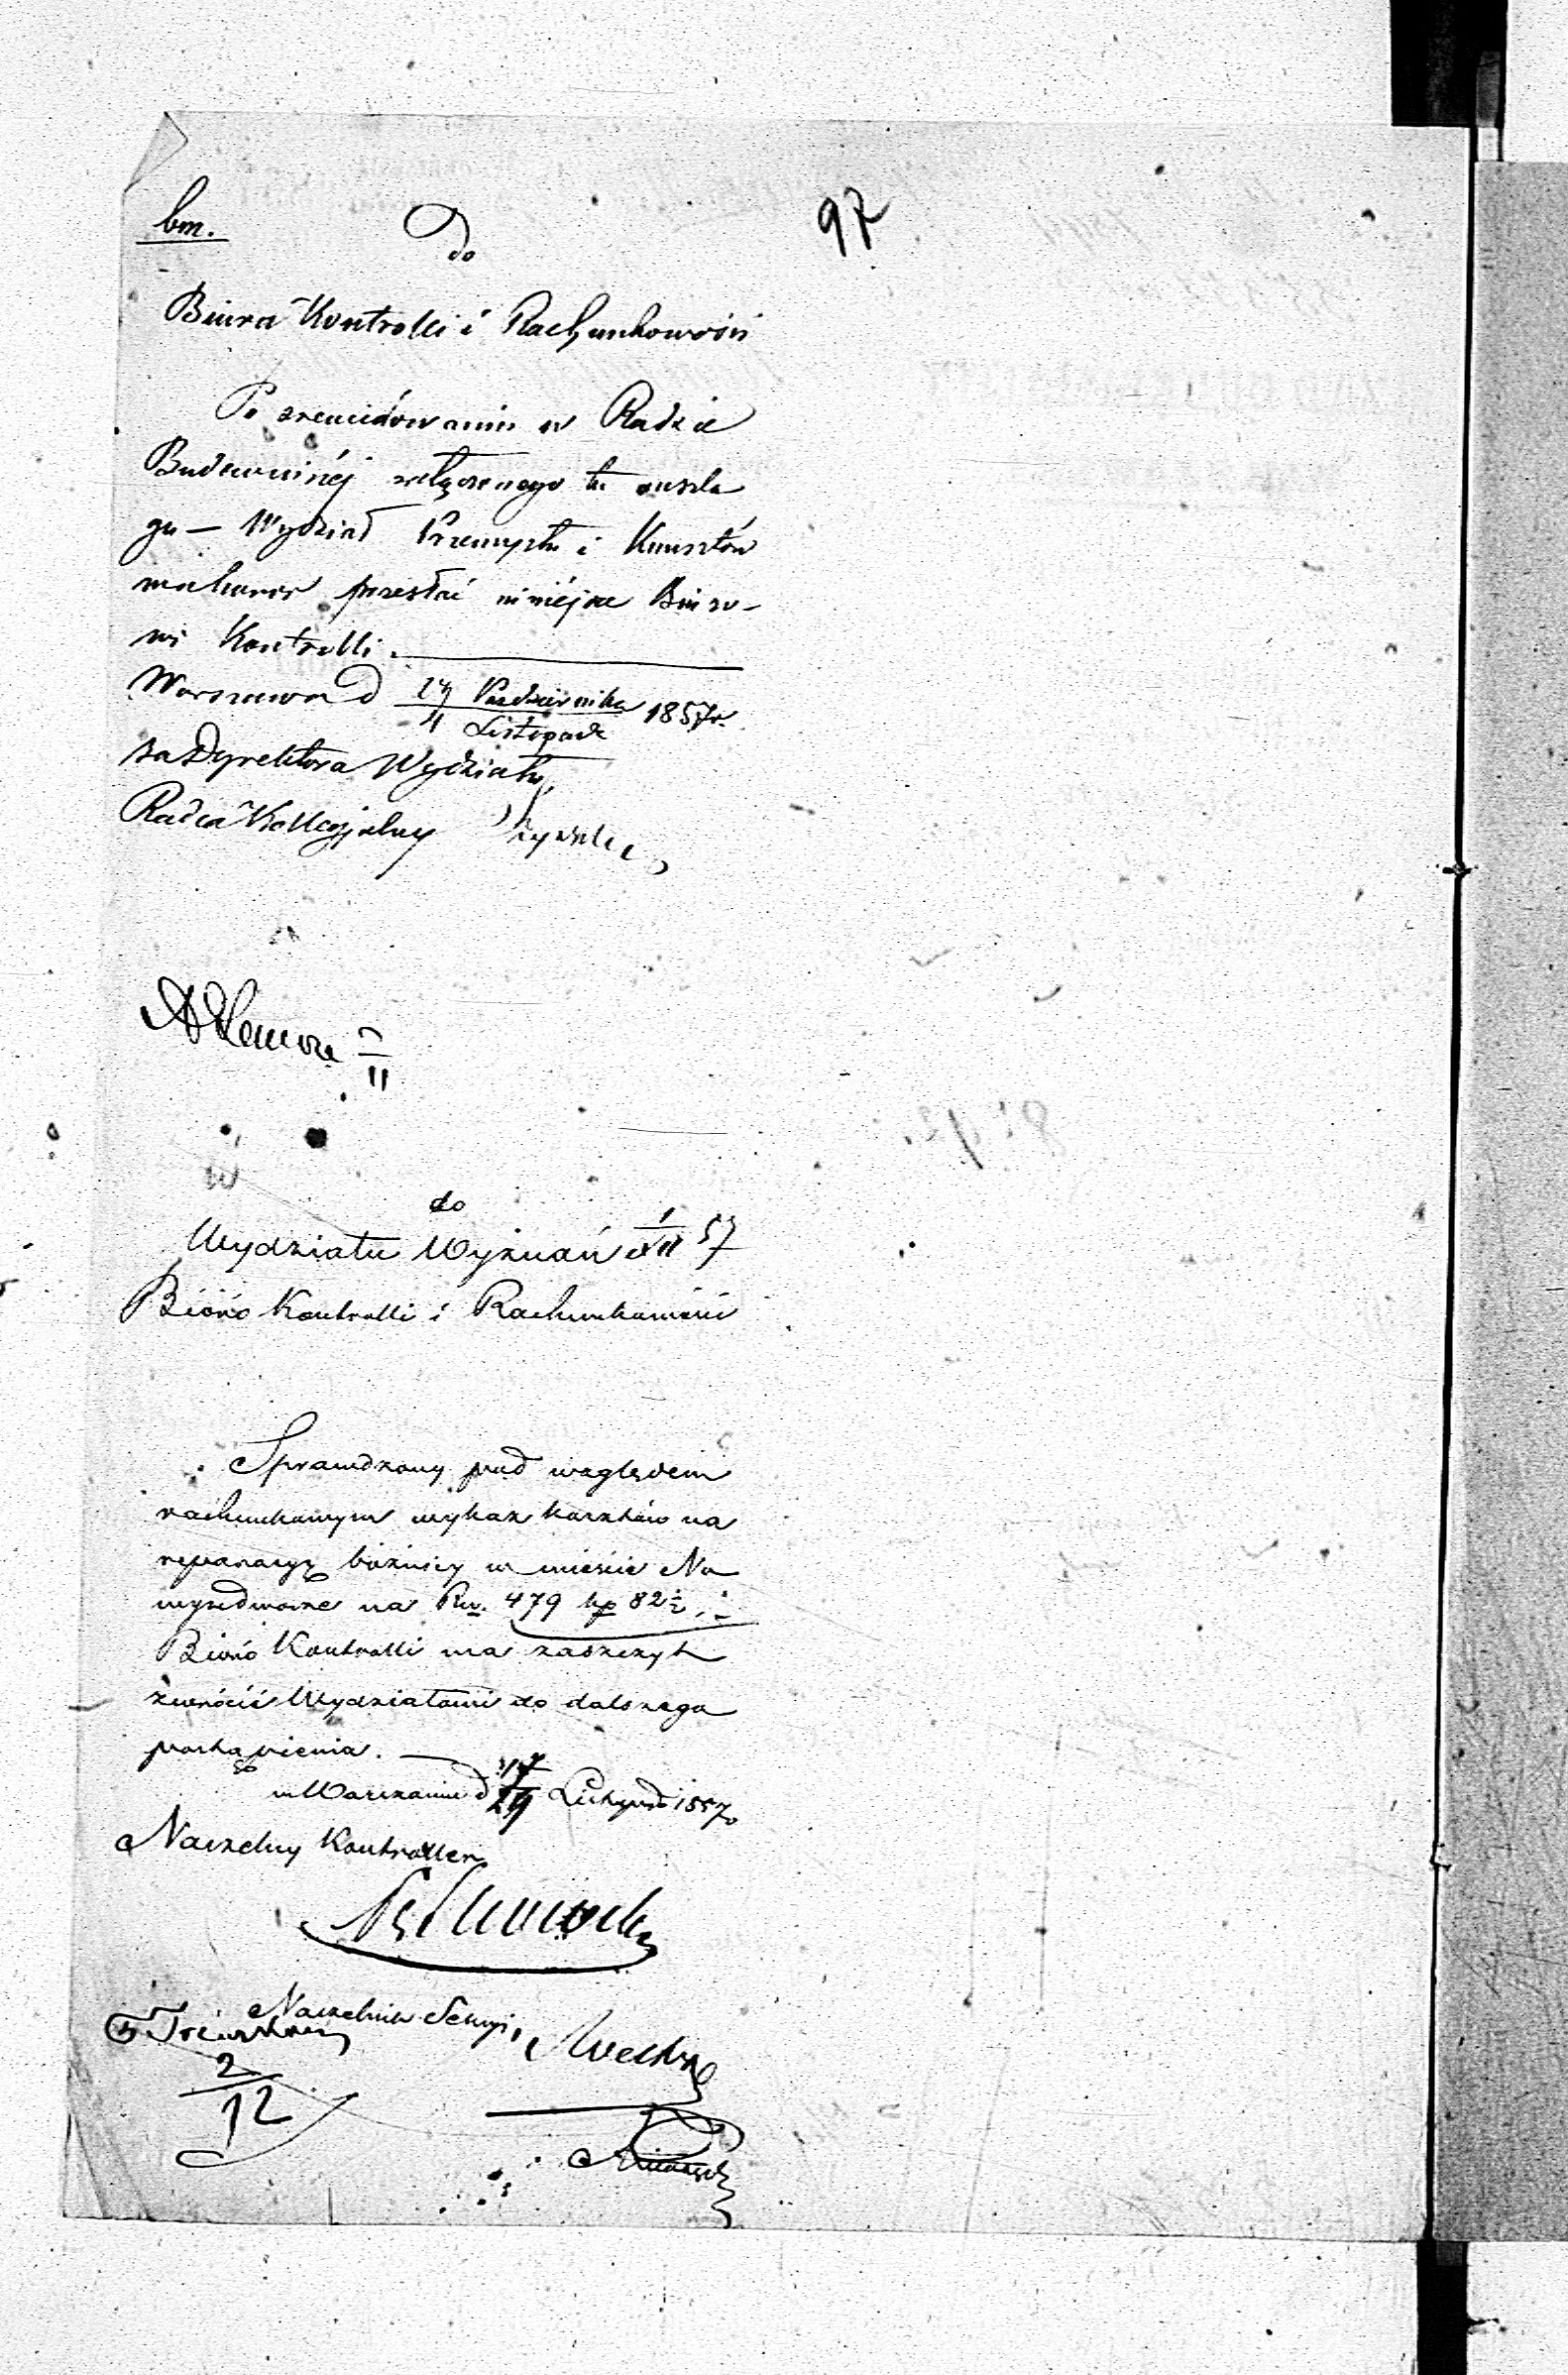 bm.
97
Do
Biura Kontrolli i Rachunkowości
Po zrewidowaniu w Radzie
Budowniczéj załączonego tu anszla
gu — Wydział Przemysłu i Kunsztów
ma honor przesłać niniéjsze Biuro-
wi Kontrolli.
Warszawa d 23 Października 1857 r.
4 Listopada
za Dyrektora Wydziału
Radca Kollegjalny
11
do
Wydziału Wyznań 1/XII 57
Bióro Kontrolli i Rachunkowości
Sprawdzony pod względem
rachunkowym wykaz kosztów na
reparacyę bóźnicy w mieście No
wymdworze na Ru. 479 kp 82½
Bióro Kontrolli ma zaszczyt
zwrócić Wydziałowi do dalszego
postąpienia.
w Warszawie d 17/29 Listopada 1857
Naczelny Kontroller
Naczelnik Sekcyi
2
12